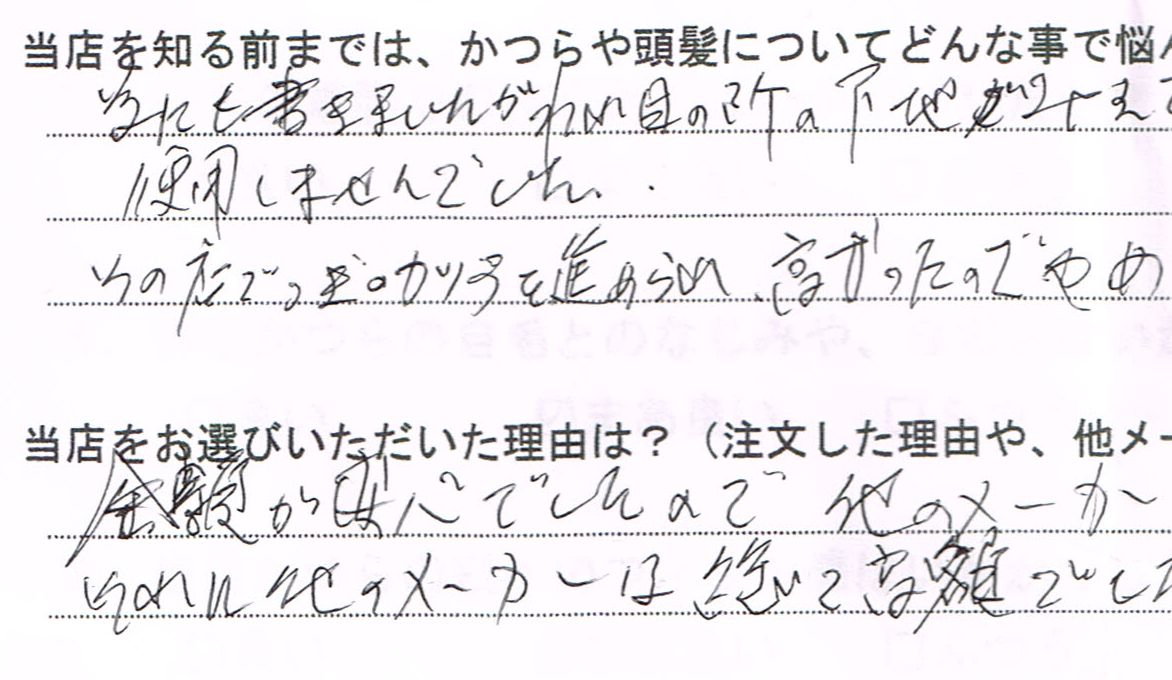 当店を知る前までは、かつらや頭髪についてどんな事で悩ん
にも書きましたがわれ目の所の下地が
使用しませんでした。
その店でつぎのかつらを進められ、高かったのでやめ
当店をお選びいただいた理由は？（注文した理由や、他メー
金額が でしたので 他のメーカー
それに他のメーカーは総て高額でした